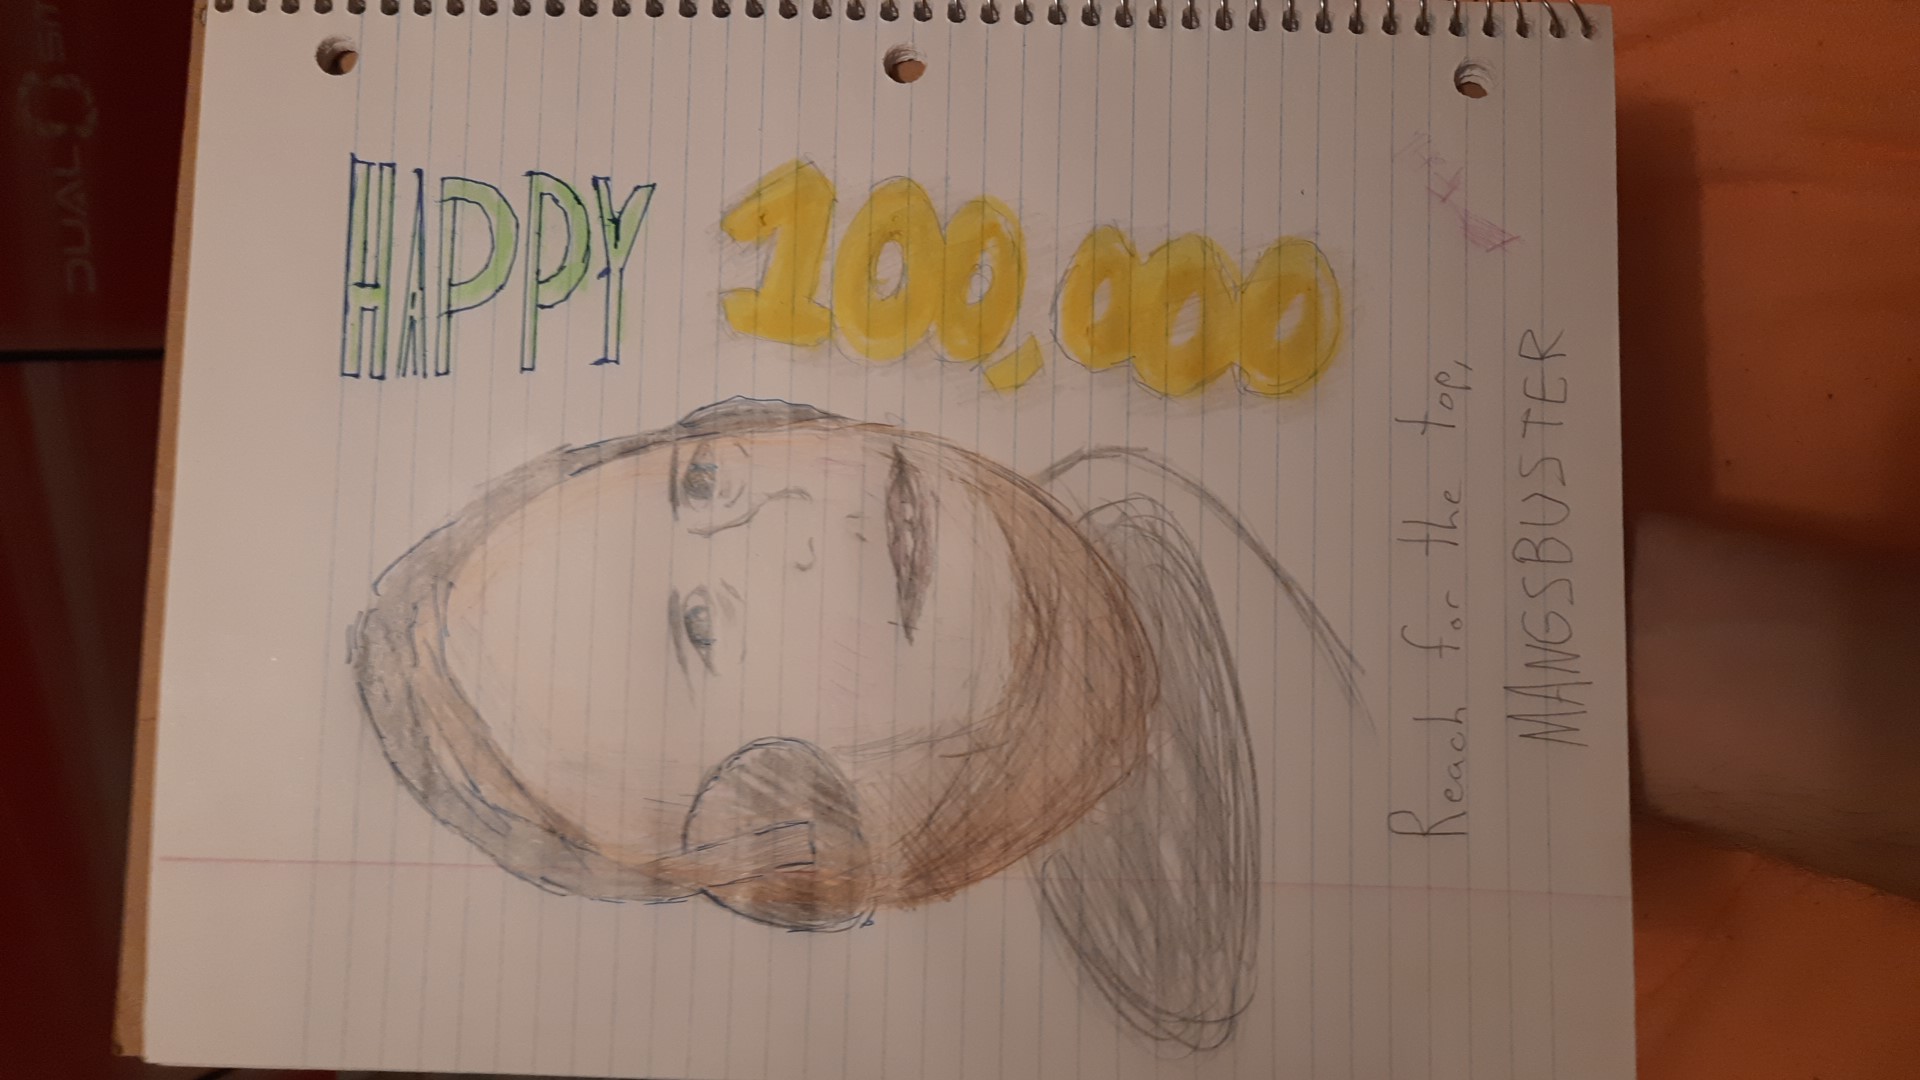 DUAL
HAPPY
100,000
Reach for the top,
MANGSBUSTER